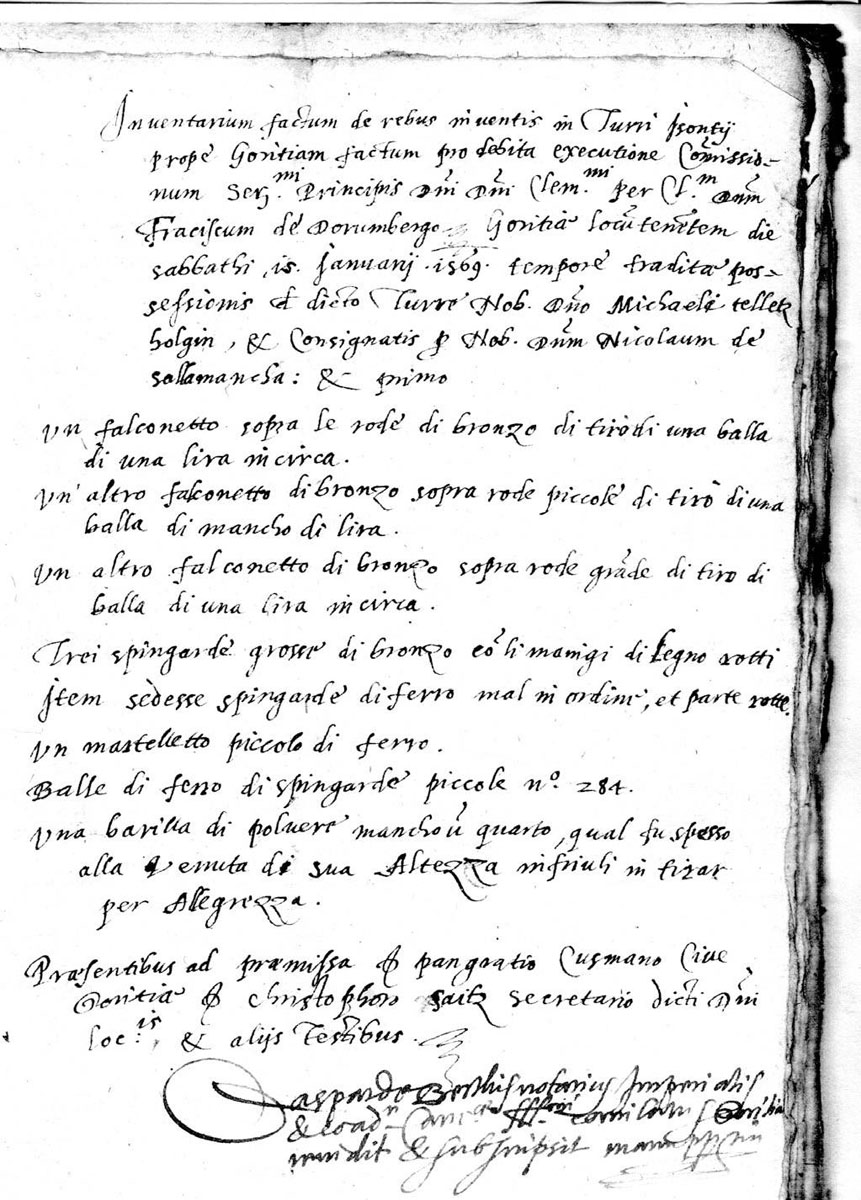 Inventarium factum de rebus inventis in Turri Isontij
prope Goritiam factum pro debita executione Com̃issio-
num Ser.mi Principis Dñi Dñi Clem.mi per Cl.m Dnm̃
Fraciscum de Dorumbergo Goritiæ locũtenẽtem die
sabbathi .15. Januarij .1569. tempore traditæ pos-
sessionis dicto Turre Nob. Dño Michaeli
holgin, & Consignatis Nob. Dnm̃ Nicolaum de
sallamancha: & primo
Un falconetto sopra le rode di bronzo di tiro di una balla
di una lira incirca.
Un' altro falconetto di bronzo sopra rode piccole di tiro di una
balla di mancho di lira.
Un altro falconetto di bronzo sopra rode grãde di tiro di
balla di una lira incirca.
Trei spingarde grosse di bronzo cõ li manigi di legno rotti
Item sedesse spingarde di ferro mal in ordine, et parte rotte.
Un martelletto piccolo di ferro.
Balle di ferro di spingarde piccole nº. 284.
Una barilla di polvere mancho ũ quarto, qual fu speso
alla venuta di sua Altezza in friuli in tirar
per Allegrezza.
Præsentibus ad præmissa pangratio Cusmano Cive
Goritiæ christophoro saitz secretario dicti Dñi
loc.is, & alijs Testibus.
Gaspardo notarius Imperialis
&
& subscripsit